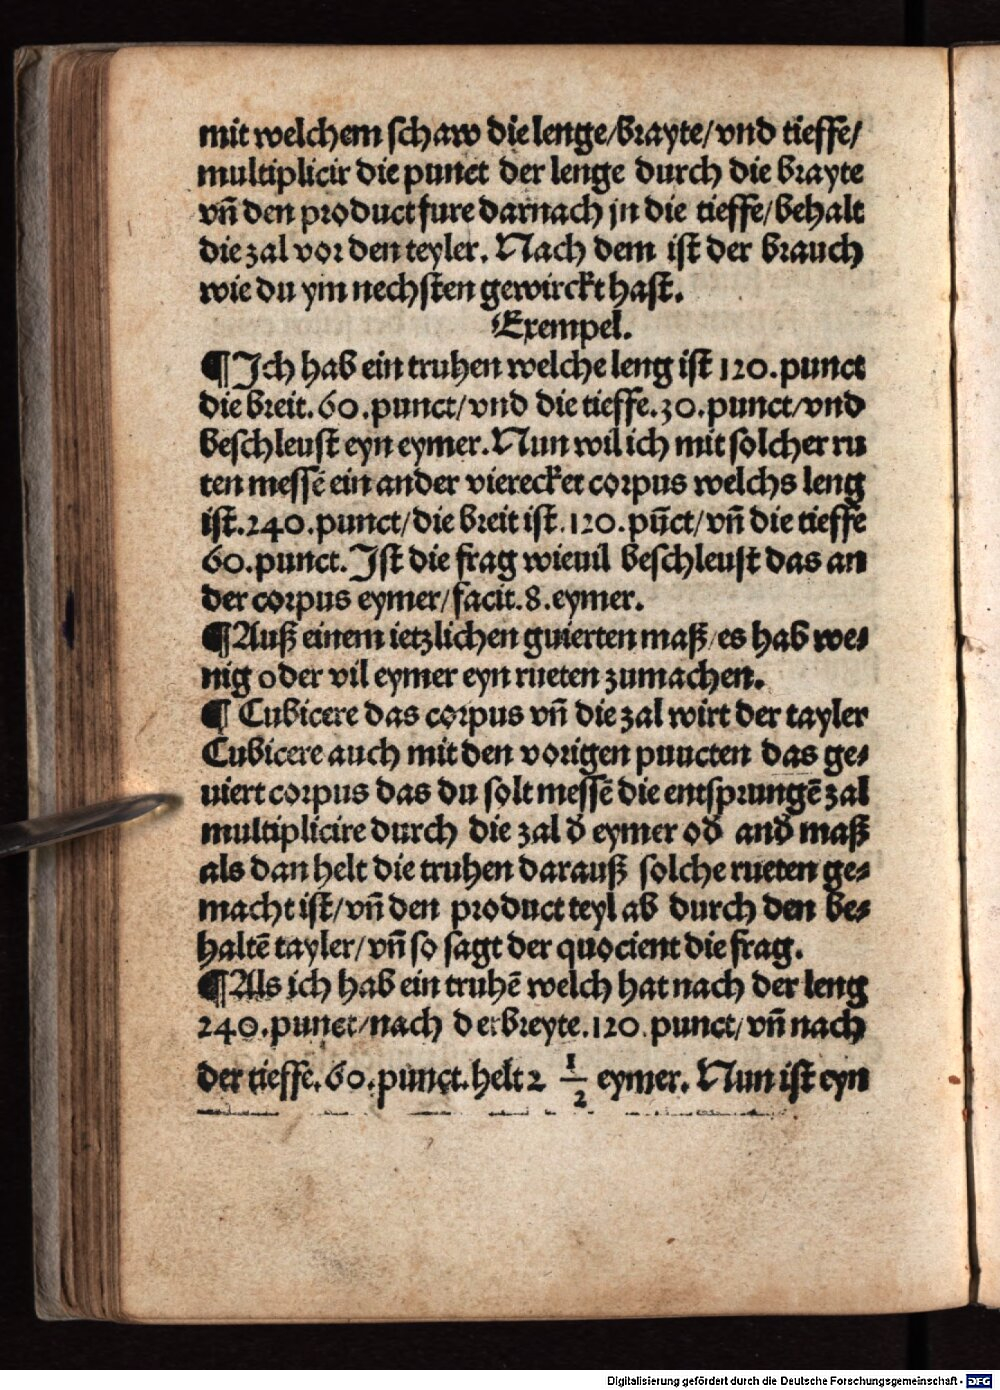 mit welchem schaw die lenge/brayte/vnd tieffe/
multiplicir die punct der lenge durch die brayte
vn̄ den product fure darnach jn die tieffe/behalt
die zal vor den teyler. Nach dem ist der brauch
wie du ym nechsten gewirckt hast.
Exempel.
¶ Ich hab ein truhen welche leng ist 120. punct
die breit. 60. punct/vnd die tieffe. 30. punct/vnd
beschleust eyn eymer. Nun wil ich mit solcher ru
ten messē ein ander vierecket corpus welchs leng
ist. 240. punct/die breit ist. 120. pūct/vn̄ die tieffe
60. punct. Ist die frag wieuil beschleust das an
der corpus eymer/facit. 8. eymer.
¶ Auß einem ietzlichen guierten maß/es hab we⸗
nig oder vil eymer eyn rueten zumachen.
¶ Cubicere das corpus vn̄ die zal wirt der tayler
Cubicere auch mit den vorigen puucten das ge⸗
uiert corpus das du solt messē die entsprungē zal
multiplicire durch die zal đ eymer ođ anđ maß
als dan helt die truhen darauß solche rueten ge⸗
macht ist/vn̄ den product teyl ab durch den be⸗
haltē tayler/vn̄ so sagt der quocient die frag.
¶ Als ich hab ein truhē welch hat nach der leng
240. punct/nach der breyte. 120. punct/vn̄ nach
der tieffe. 60. punct. helt 2 1/2 eymer. Nun ist eyn
Digitalisierung gefördert durch die Deutsche Forschungsgemeinschaft - DFG